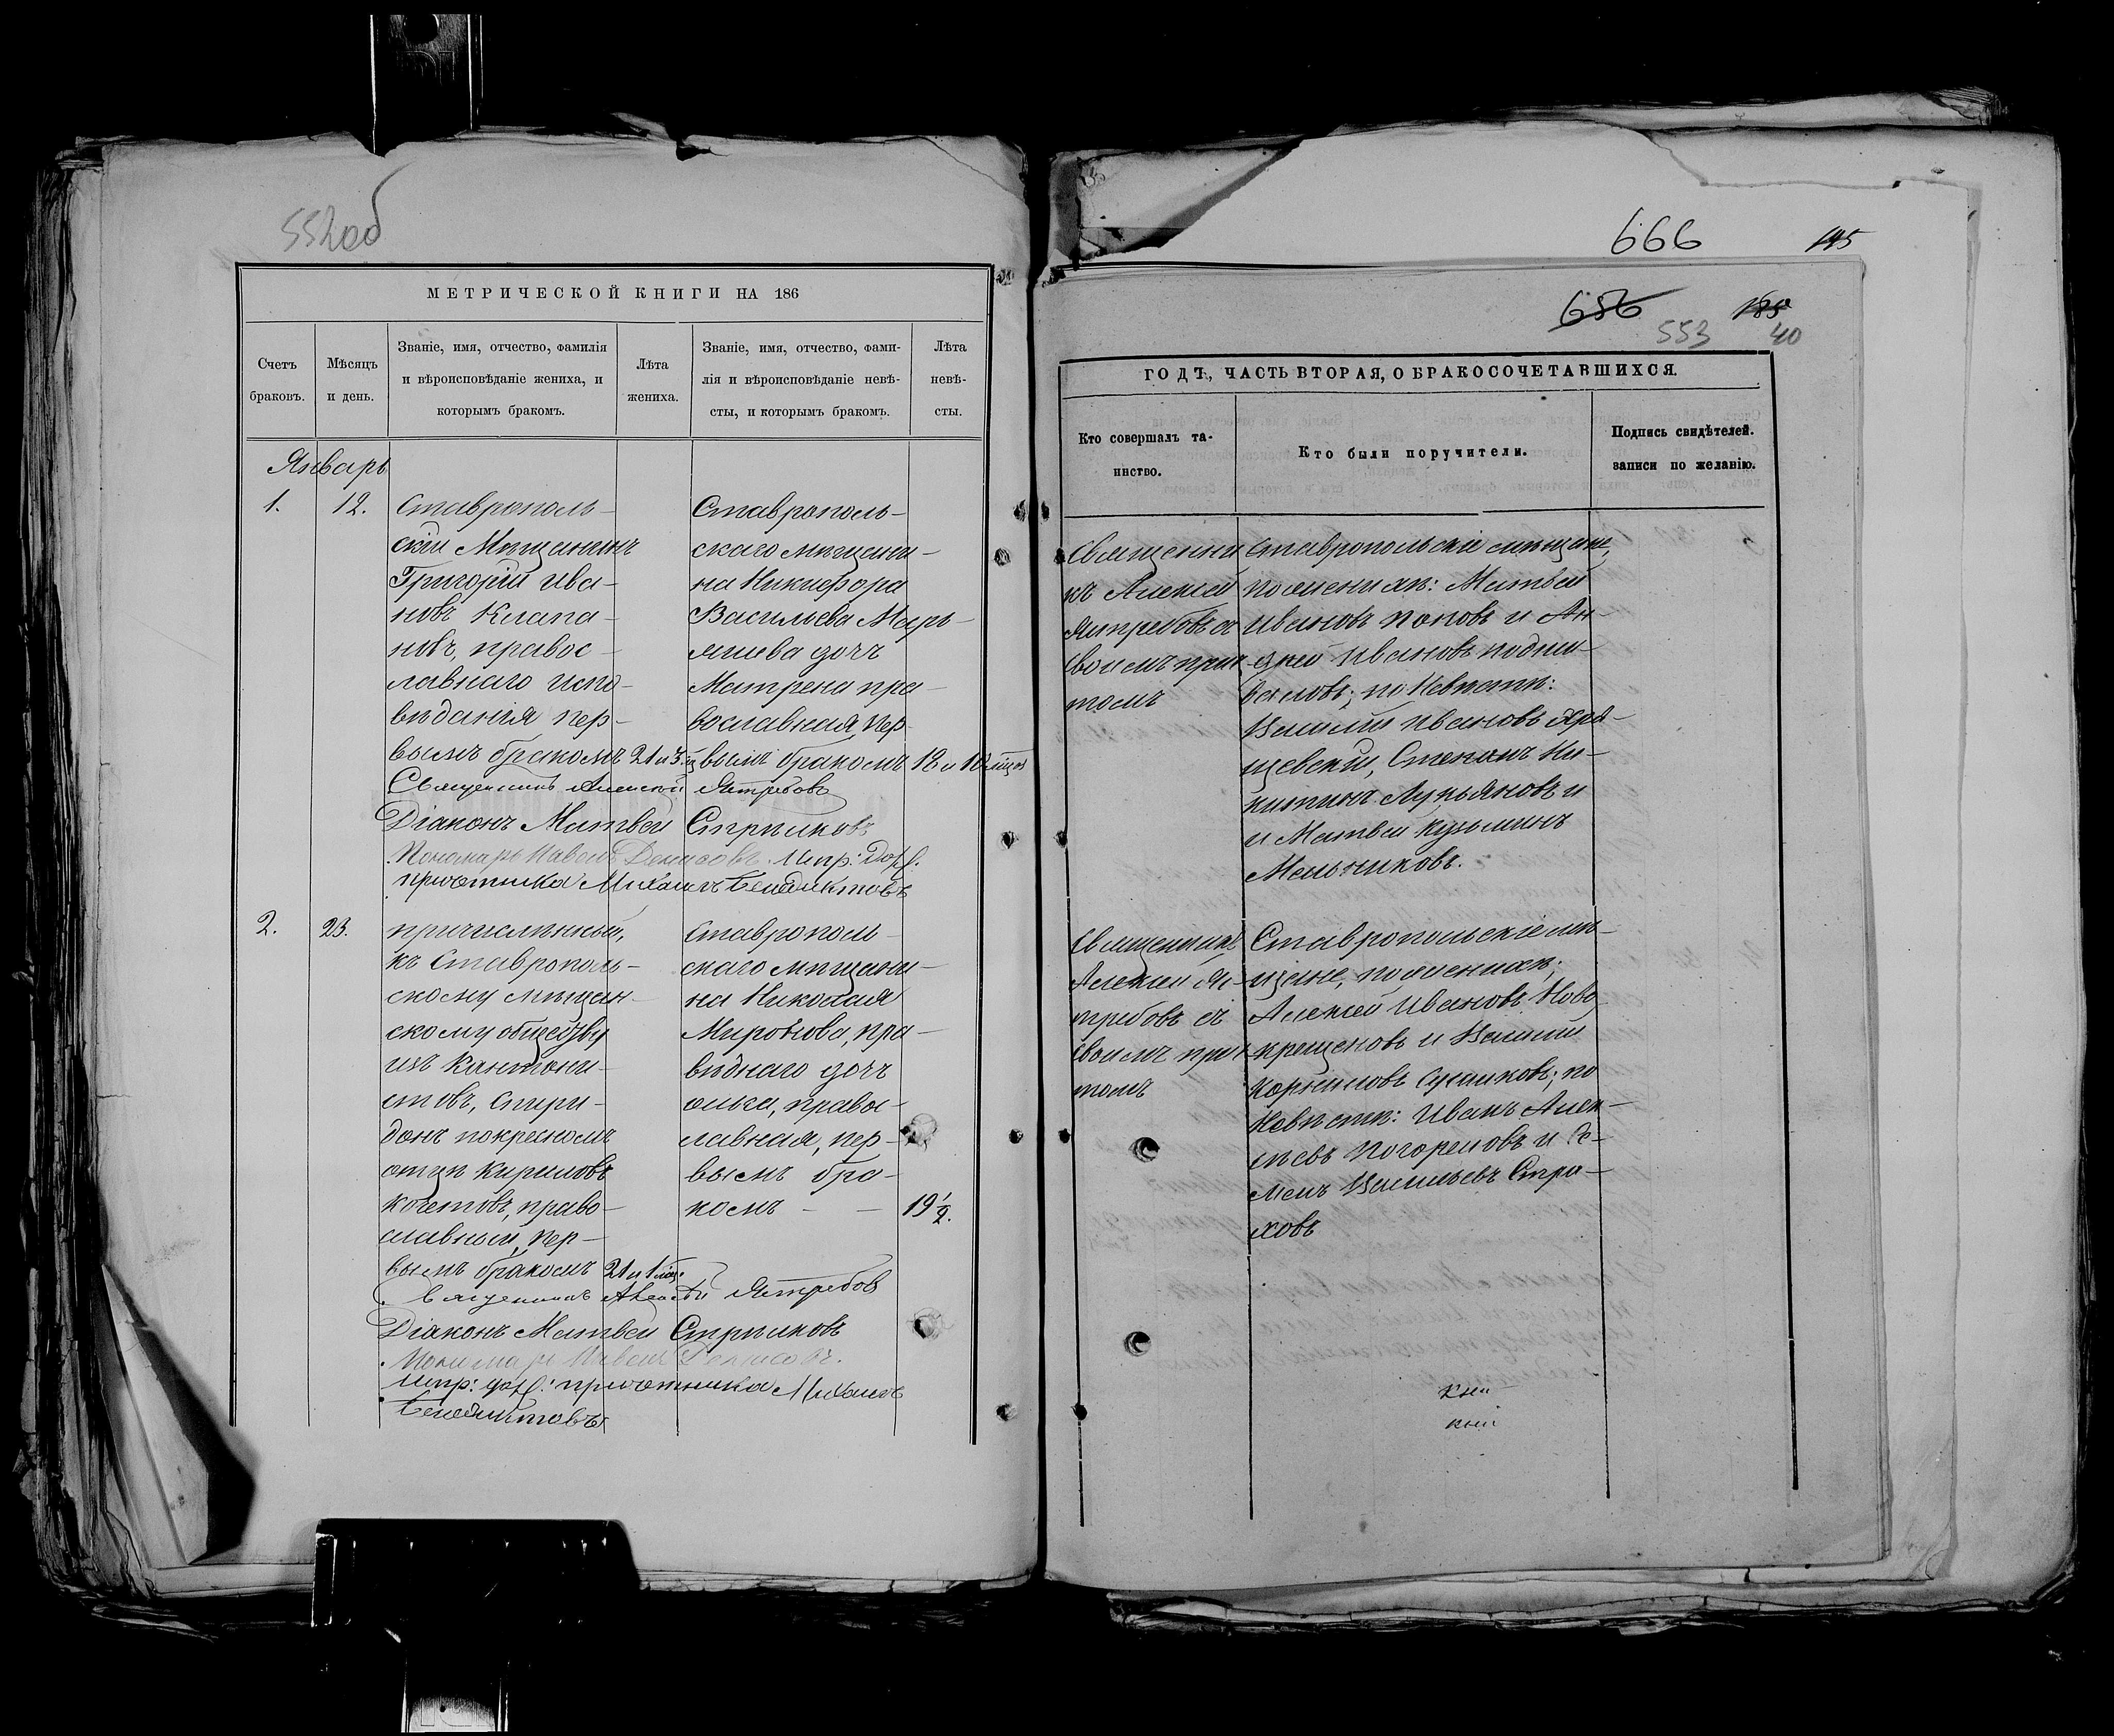 552об
МЕТРИЧЕСКОЙ КНИГИ НА 186
Счетъ
браковъ.
Мѣсяцъ
и день.
Званіе, имя, отчество, фамилія
и вѣроисповѣданіе жениха, и
которымъ бракомъ.
Лѣта
жениха.
Званіе, имя, отчество, фами-
лія и вѣроисповѣданіе невѣ-
сты, и которымъ бракомъ.
Лѣта
невѣ-
сты.
Январь
1.
12.
Ставрополь-
скій Мѣщанинъ
Григорій Ива-
новъ Клапа-
новъ, правос-
лавнаго испо-
вѣданія пер-
вымъ бракомъ
21 и 3
Ставрополь-
скаго мѣщани-
на Никифора
Васильева Марь-
яшева дочь
Матрена пра-
вославная, пер-
вымъ бракомъ
18 и 10 мцов
Священникъ Алексей Ястребовъ
Діаконъ Матвей Стрѣлковъ
Пономарь Павелъ Денисовъ. Испр: долж.
причетника Михаилъ Бенедиктовъ
2.
23.
причисленный,
къ Ставрополь-
скому мѣщан-
скому обществу
изъ Кантони-
стовъ, Спири-
донъ покресному
отцу Кириловъ
Кочетовъ, право-
славный, пер-
вымъ бракомъ
21 и 1 мѣс.
Ставрополь-
скаго мѣщани-
на Николая
Миронова, пра-
вѣднаго дочь
Ольга, правос-
лавная, пер-
вымъ бра-
комъ - -
19 1/2.
Священникъ Алексѣй Ястребов
Діаконъ Матвей Стрѣлковъ
Пономарь Павелъ Денисовъ.
Испр: долж: причетника Михаилъ
Бенедиктовъ
666
195
656
185
553
40
ГОДЪ, ЧАСТЬ ВТОРАЯ, О БРАКОСОЧЕТАВШИХСЯ.
Кто совершалъ та-
инство.
Кто были поручители.
Подпись свидѣтелей.
записи по желанію.
Священни
къ Алексей
Ястребовъ съ
своимъ прич
томъ
Ставропольскіе мѣщане,
по женихѣ: Матвей
Ивановъ Поповъ и Ан-
дрей Ивановъ Подши-
валовъ; по Невѣстѣ:
Василій Ивановъ Хря-
щевскій, Степанъ Ни-
китинъ Лукьяновъ и
и Матвей Кузьминъ
Мельниковъ.
Священникъ
Алексей Яс-
требовъ съ
своимъ прич
томъ
Ставропольскіе мѣ-
щане, по женихѣ;
Алексей Ивановъ Ново
крещеновъ и Василій
Корниловъ Сусликовъ; по
Невѣстѣ: Иванъ Алек-
сѣевъ Погореловъ и Се-
менъ Васильевъ Стра-
ховъ